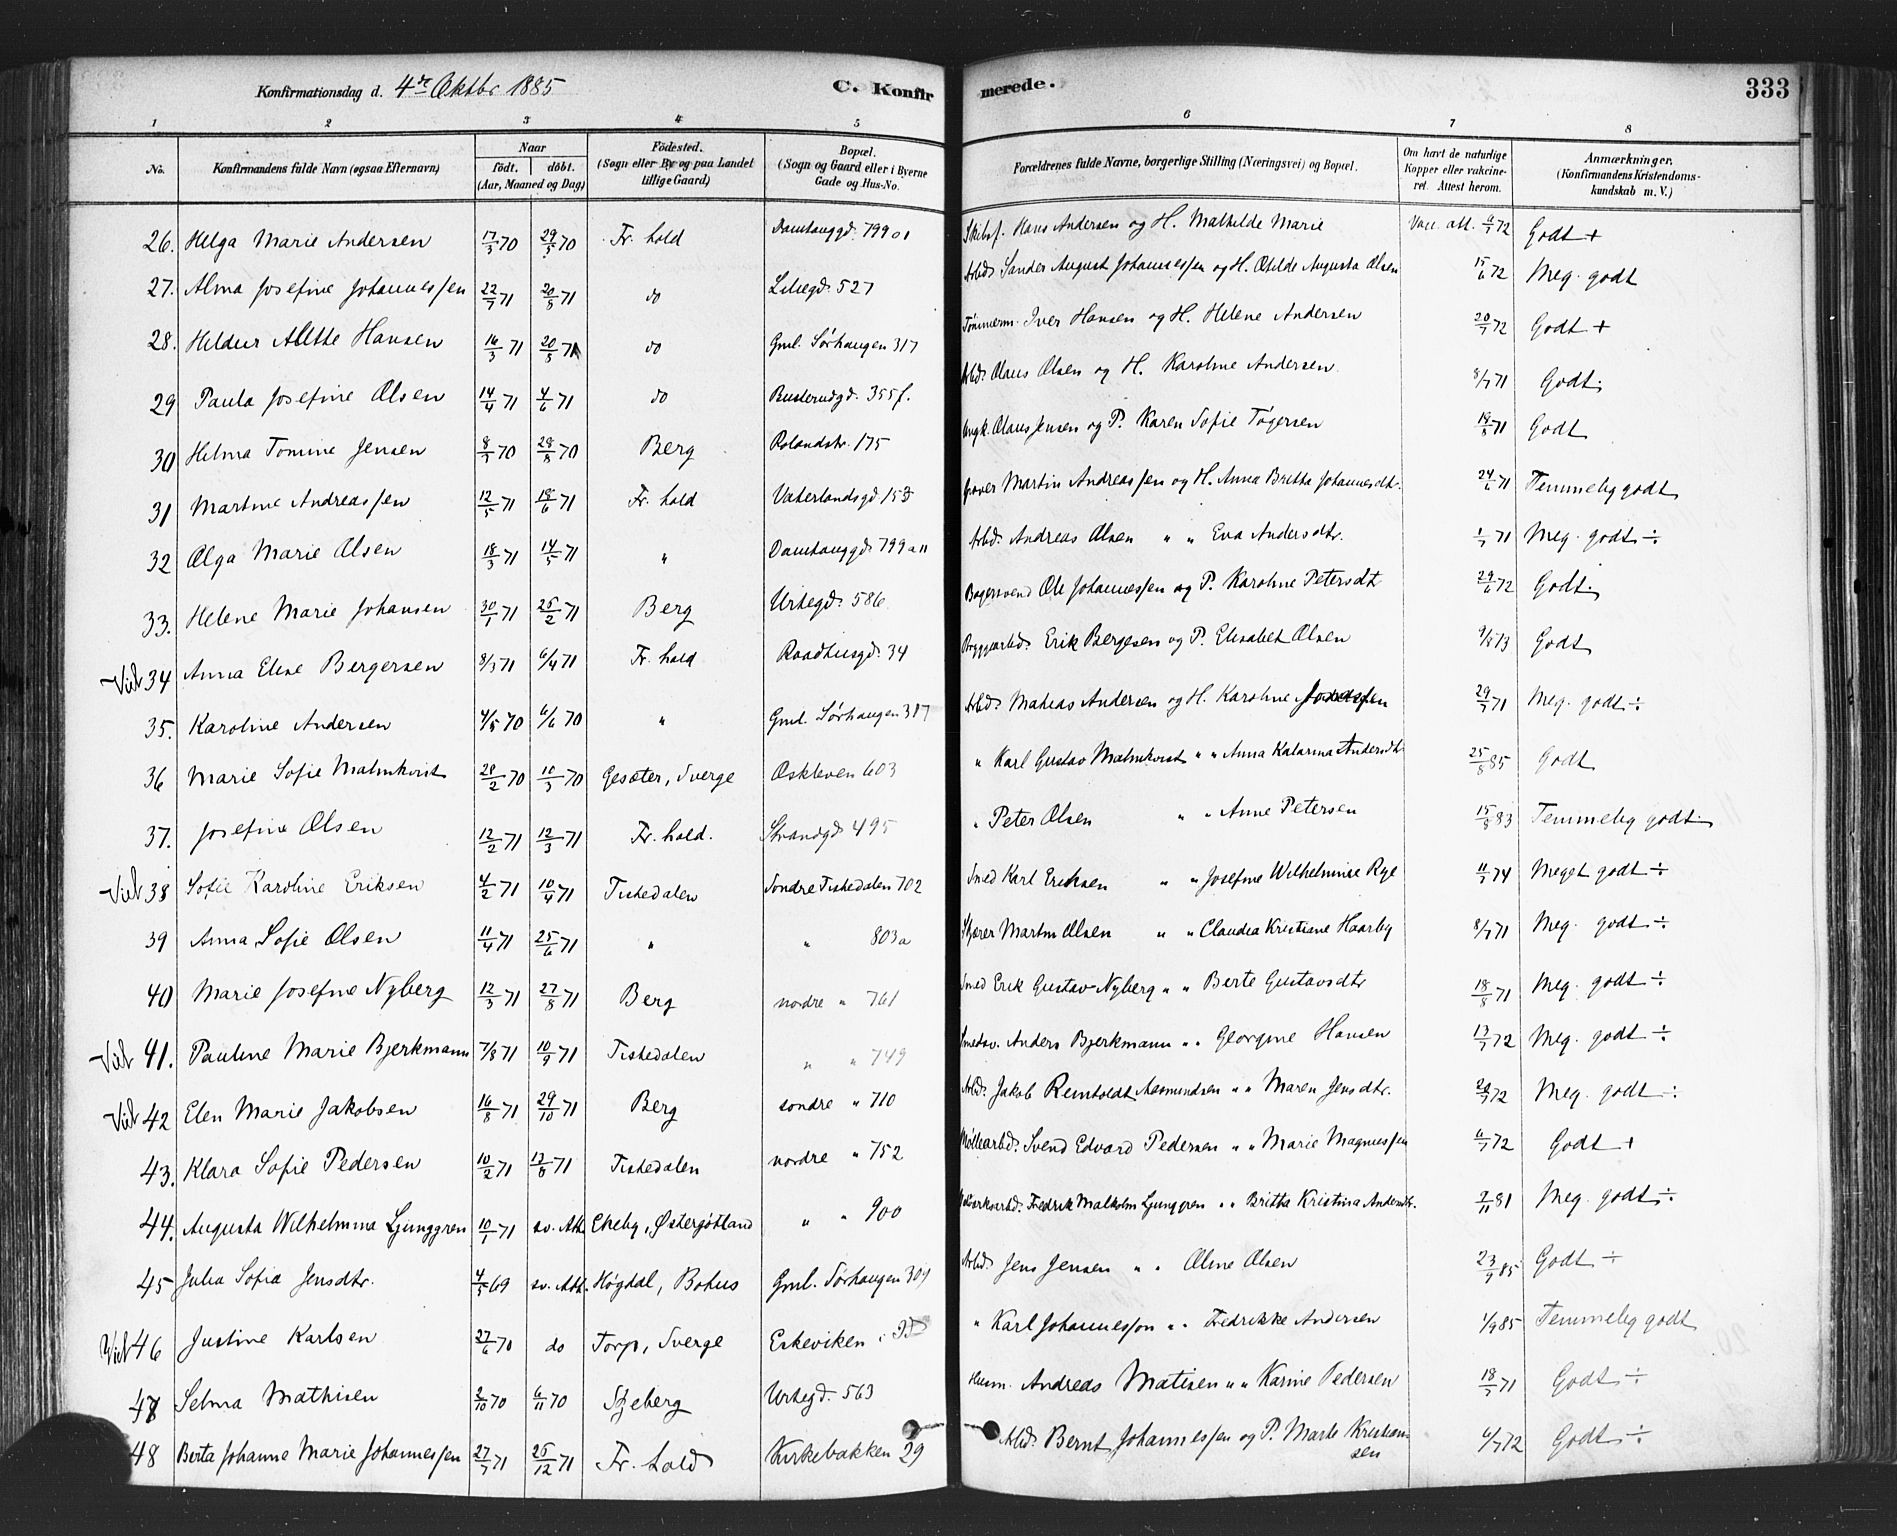 Konfirmationsdag d. 4de Oktbr 1885 C. Konfirmerede. 333
1 2 3 4 5 6 7 8
No. Konfirmandens fulde Navn (ogsaa Efternavn) Naar født. døbt. (Aar, Maaned og Dag) Fødested. (Sogn eller By og paa Landet tillige Gaard) Bopæl. (Sogn og Gaard eller i Byerne Gade og Hus-No. Forældrenes fulde Navne, borgerlige Stilling (Næringsvei) og Bopæl. Om havt de naturlige Kopper eller vakcineret. Attest herom. Anmærkninger. (Konfirmandens Kristendomskundskab m. V.)
26. Helga Marie Andersen 17/3 70 29/5 70 Fr.hald Damhauggd. 799 Skibsf. Hans Andersen og H. Mathilde Marie Vacc. att. 72 Godt +
27. Alma Josefine Johannessen 22/7 71 20/8 71 do 527 Arbd. Sander August Johannessen og H. Otilde Augusta Olsen 15/6 72 Meg. godt
28. Alette Hansen 16/3 71 20/5 71 do Gml. Sørhaugen 317 Tømmerm. Iver Hansen og H. Helene Andersen 20/7 72 Godt +
29 Paula Josefine Olsen 14/4 71 4/6 71 do Busterudgd. 355 f. Arbd. Olaus Olsen og H. Karoline Andersen 8/7 71 Godt.
30 Helma Tomine Jensen 8/7 70 28/8 70 Berg Rolandstr. 175 Olaus Jensen og P. Karen Sofie Tøgersen 71 Godt
31 Martine Andreassen 12/5 71 18/6 71 Fr.hald Vaterlandsgd 153 Martin Andreassen og H. Anna Britha Johannesdtr. 24/6 71 Temmelig godt
32 Olga Marie Olsen 18/3 71 14/5 71 " Damhauggd. 799 a 11 Arbd. Andreas Olsen " " Eva Andersdtr. 1/7 71 Meg. godt ÷
33. Helene Marie Johansen 30/1 71 25/2 71 Berg Urtegd. 586 Bagersvend Ole Johannessen og P. Karoline Petersdt 29/6 72 Godt.
Vid 34 Anna Elise Bergersen 8/3 71 6/4 71 Fr.hald Raadhusgd. 34 Bryggearbd. Erik Bergesen og P. Elisabet Olsen 73 Godt
35. Karoline Andersen 4/5 70 6/6 70 " Gml. Sørhaugen 317 Arbd. Matias Andersen og H. Karoline 29/7 71 Meg. godt ÷
36 Marie Sofie Malmkvist 28/2 70 10/3 70 Gesæter, Sverge Oskleven 603 " Karl Gustav Malmkvist " " Anna Katarina Andersdtr 25/8 85 Godt
37. Josefine Olsen 12/2 71 12/3 71 Fr.hald. Strandgd 495 " Peter Olsen " " Anne Petersen 15/8 83 Temmelig godt.
Vid 38 Sofie Karoline Eriksen 4/2 71 10/4 71 Tistedalen Søndre Tistedalen 702 Smed Karl Eriksen " " Josefine Wilhelmine Rye 11/7 74 Meget godt ÷
39 Anna Sofie Olsen 11/4 71 25/6 71 " " 803a Martin Olsen " " Claudia Kristiane Haarby 8/7 71 Meg. godt ÷
40 Marie Josefine Nyberg 12/3 71 27/8 71 Berg nordre " 761 Smed Erik Gustav Nyberg " " Berte Gustavsdtr 18/8 71 Meg. godt ÷
Vid 41. Pauline Marie Bjerkmann 7/8 71 10/9 71 Tistedalen " " 749 Smedsv. Anders Bjerkmann " " Georgine Hansen 13/7 72 Meg. godt ÷
Vid 42 Elen Marie Jakobsen 16/8 71 29/10 71 Berg søndre " 710 Arbd. Jakob Reinholdt Aasmundsen " " Maren Jensdtr. 72 Meg. godt ÷
43. Klara Sofie Pedersen 10/2 71 13/8 71 Tistedalen nordre " 752 Møllearbd. Svend Edvard Pedersen " " Marie Magnussen 6/7 72 Godt +
44. Augusta Wilhelmina Ljunggren 10/1 71 sv. Att Ekeby, Østergøtland " " 900 Fredrik Malkolm Ljunggren " " Britta Kristina Andersdtr. 2/11 81 Meg. godt ÷
45 Julia Sofia Jensdtr. 4/5 69 sv. Att. Høgdal, Bohus Gml. Sørhaugen 309 Arbd. Jens Jensen " " Oline Olsen 23/9 85 Godt ÷
Vid 46 Justine Karlsen 27/6 70 do Torp, Sverge Eskeviken i Id " Karl Johannesson " " Fredrikke Andersen 1/9 85 Temmelig godt
47 Selma Mathisen 2/10 70 6/11 70 Skjeberg Urtegd. 563 Husm. Andreas Matisen " " Karine Pedersen 18/7 71 Godt ÷
48 Berta Johanne Marie Johannessen 27/7 71 26/12 71 Fr.hald Kirkebakken 29 Arbd. Bernt Johannessen og P. Marte Kristiansen 6/7 72 Godt ÷